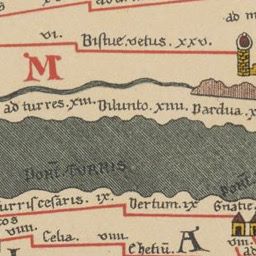 ad m
VI. Bistue vetus. XXV.
M
ad turres. XIII. Dilunto. XIIII. Pardua. X
PONT. TURRIS
PONT.
urris Cesaris. IX. Vertum. IX Gnatie.
cos
VIIII. Celia. VIIII. Ehetiū. A VIIII.
ad